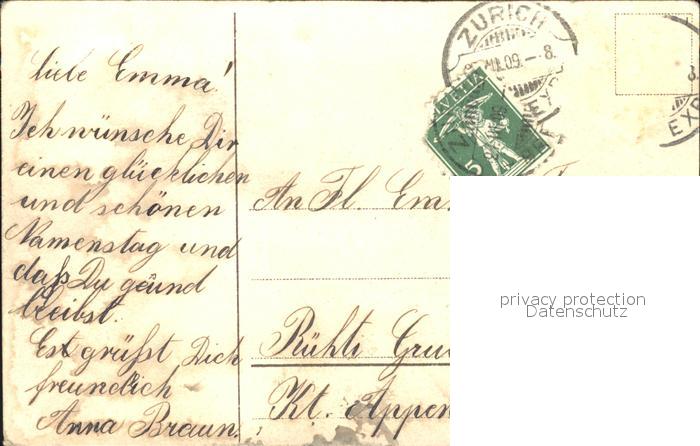 liebe Emma!
Ich wünsche Dir
einen glücklichen
und schönen
Namenstag und
daß Du gesund
bleibst.
Est grüßt Dich
freundlich
Anna Braun.
ZÜRICH
09.–8.
HELVETIA
5
EX
An Fl. Em
Rühti
Kt. Appen
privacy protection
Datenschutz